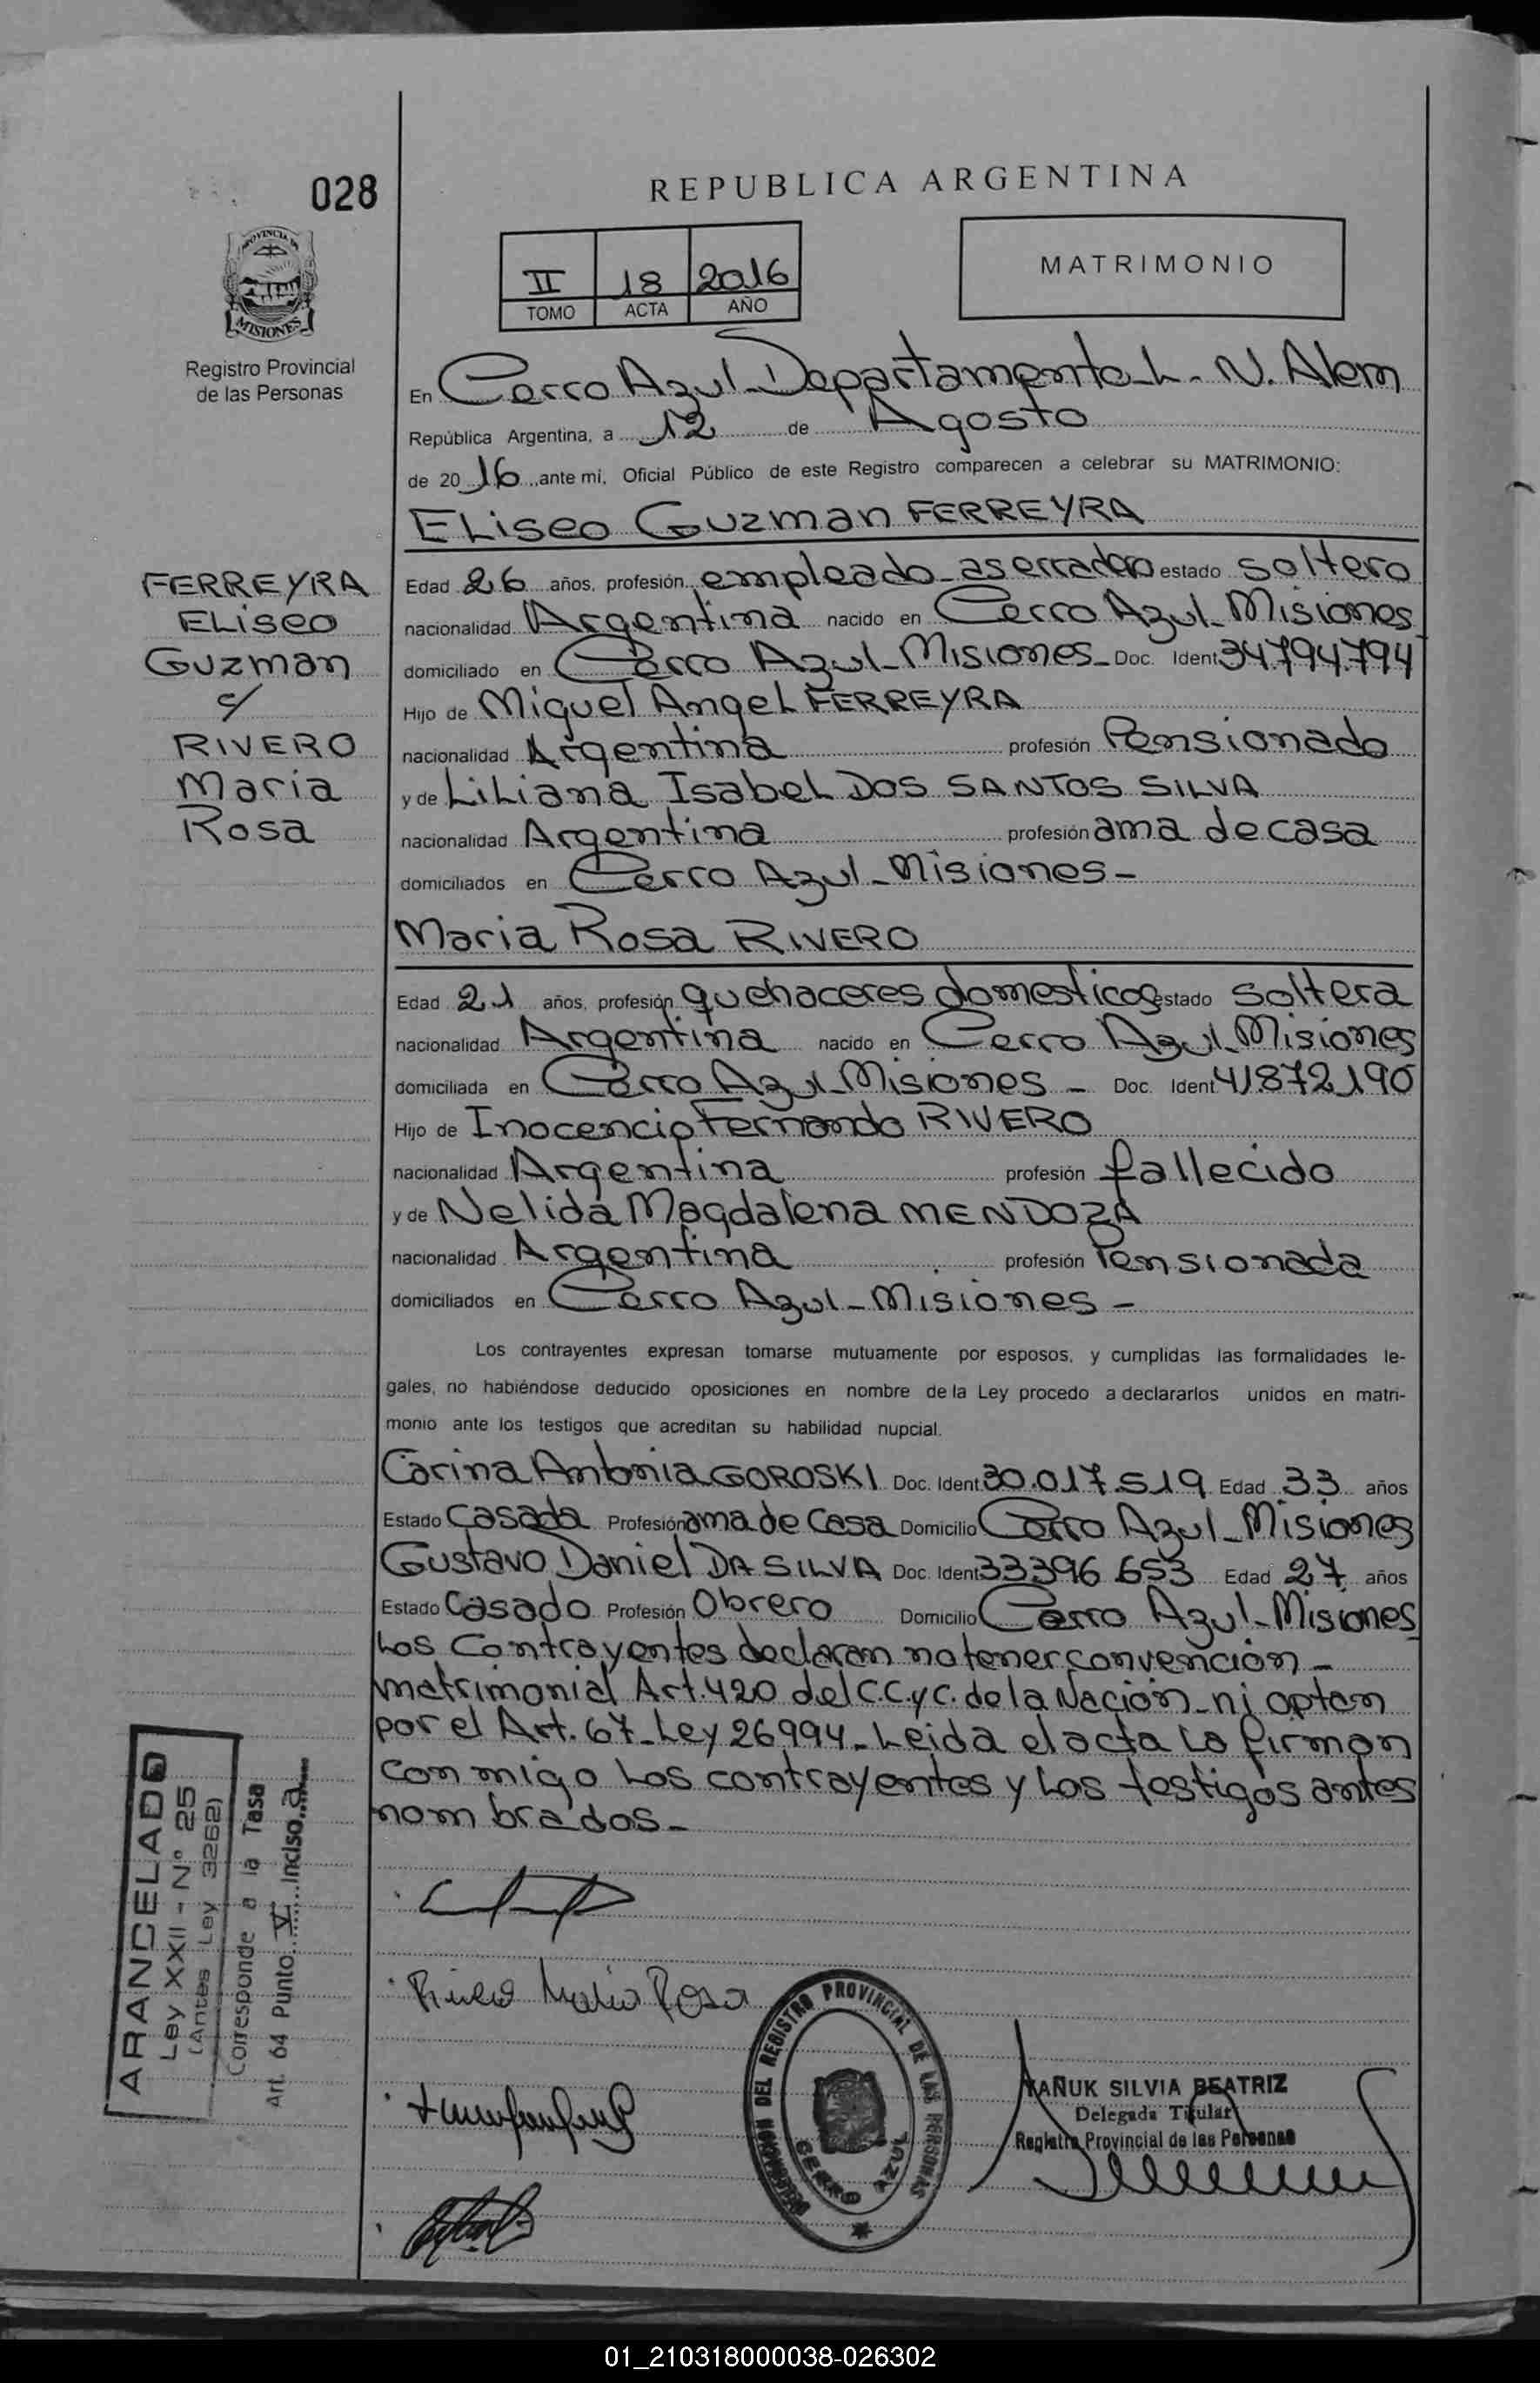 028
REPUBLICA ARGENTINA
PROVINCIA DE
MISIONES
Registro Provincial
de las Personas
II 18 2016
TOMO ACTA AÑO
MATRIMONIO
En Cerro Azul - Departamento L. N. Alem
República Argentina, a 12 de Agosto
de 2016 ante mi, Oficial Público de este Registro comparecen a celebrar su MATRIMONIO:
Eliseo Guzman FERREYRA
FERREYRA
Eliseo
Guzman
c/
RIVERO
Maria
Rosa
Edad 26 años, profesión empleado aserradero estado soltero
nacionalidad Argentina nacido en Cerro Azul - Misiones
domiciliado en Cerro Azul - Misiones - Doc. Ident 34.794.794
Hijo de Miguel Angel FERREYRA
nacionalidad Argentina profesión Pensionado
y de Liliana Isabel DOS SANTOS SILVA
nacionalidad Argentina profesión ama de casa
domiciliados en Cerro Azul - Misiones -
Maria Rosa RIVERO
Edad 21 años, profesión quehaceres domesticos estado soltera
nacionalidad Argentina nacido en Cerro Azul - Misiones
domiciliada en Cerro Azul - Misiones - Doc. Ident 41.872.190
Hijo de Inocencio Fernando RIVERO
nacionalidad Argentina profesión fallecido
y de Nelida Magdalena MENDOZA
nacionalidad Argentina profesión Pensionada
domiciliados en Cerro Azul - Misiones -
Los contrayentes expresan tomarse mutuamente por esposos, y cumplidas las formalidades le-
gales, no habiéndose deducido oposiciones en nombre de la Ley procedo a declararlos unidos en matri-
monio ante los testigos que acreditan su habilidad nupcial.
Carina Antonia GOROSKI Doc. Ident 30.017.519 Edad 33 años
Estado Casada Profesión ama de Casa Domicilio Cerro Azul - Misiones
Gustavo Daniel DA SILVA Doc. Ident 33396 653 Edad 27 años
Estado Casado Profesión Obrero Domicilio Cerro Azul - Misiones
Los Contrayentes declaran no tener convención -
matrimonial Art. 420 del C.C. y C. de la Nación - ni optan
por el Art. 67 - Ley 26994 - Leida el acta la firman
con migo los contrayentes y los testigos antes
nombrados -
ARANCELADO
Ley XXII - N° 25
(Antes Ley 3262)
Corresponde a la Tasa
Art. 64 Punto V Inciso a
Rivero Maria Rosa
DELEGACION DEL REGISTRO PROVINCIAL DE LAS PERSONAS
CERRO AZUL
YAÑUK SILVIA BEATRIZ
Delegada Titular
Registro Provincial de las Personas
01_210318000038-026302